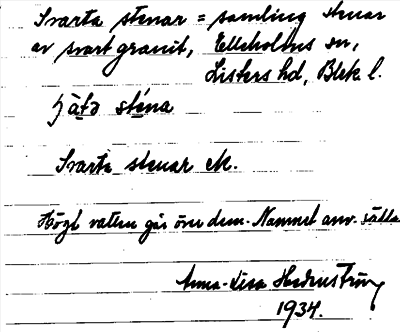 Svarta stenar = samling stenar
av svart granit, Elleholms sn,
Listers hd, Blek. l.
sténa
Svarta stenar ek.
Högt vatten går över dem. Namnet anv. sällan
Anna-Lisa
1934.